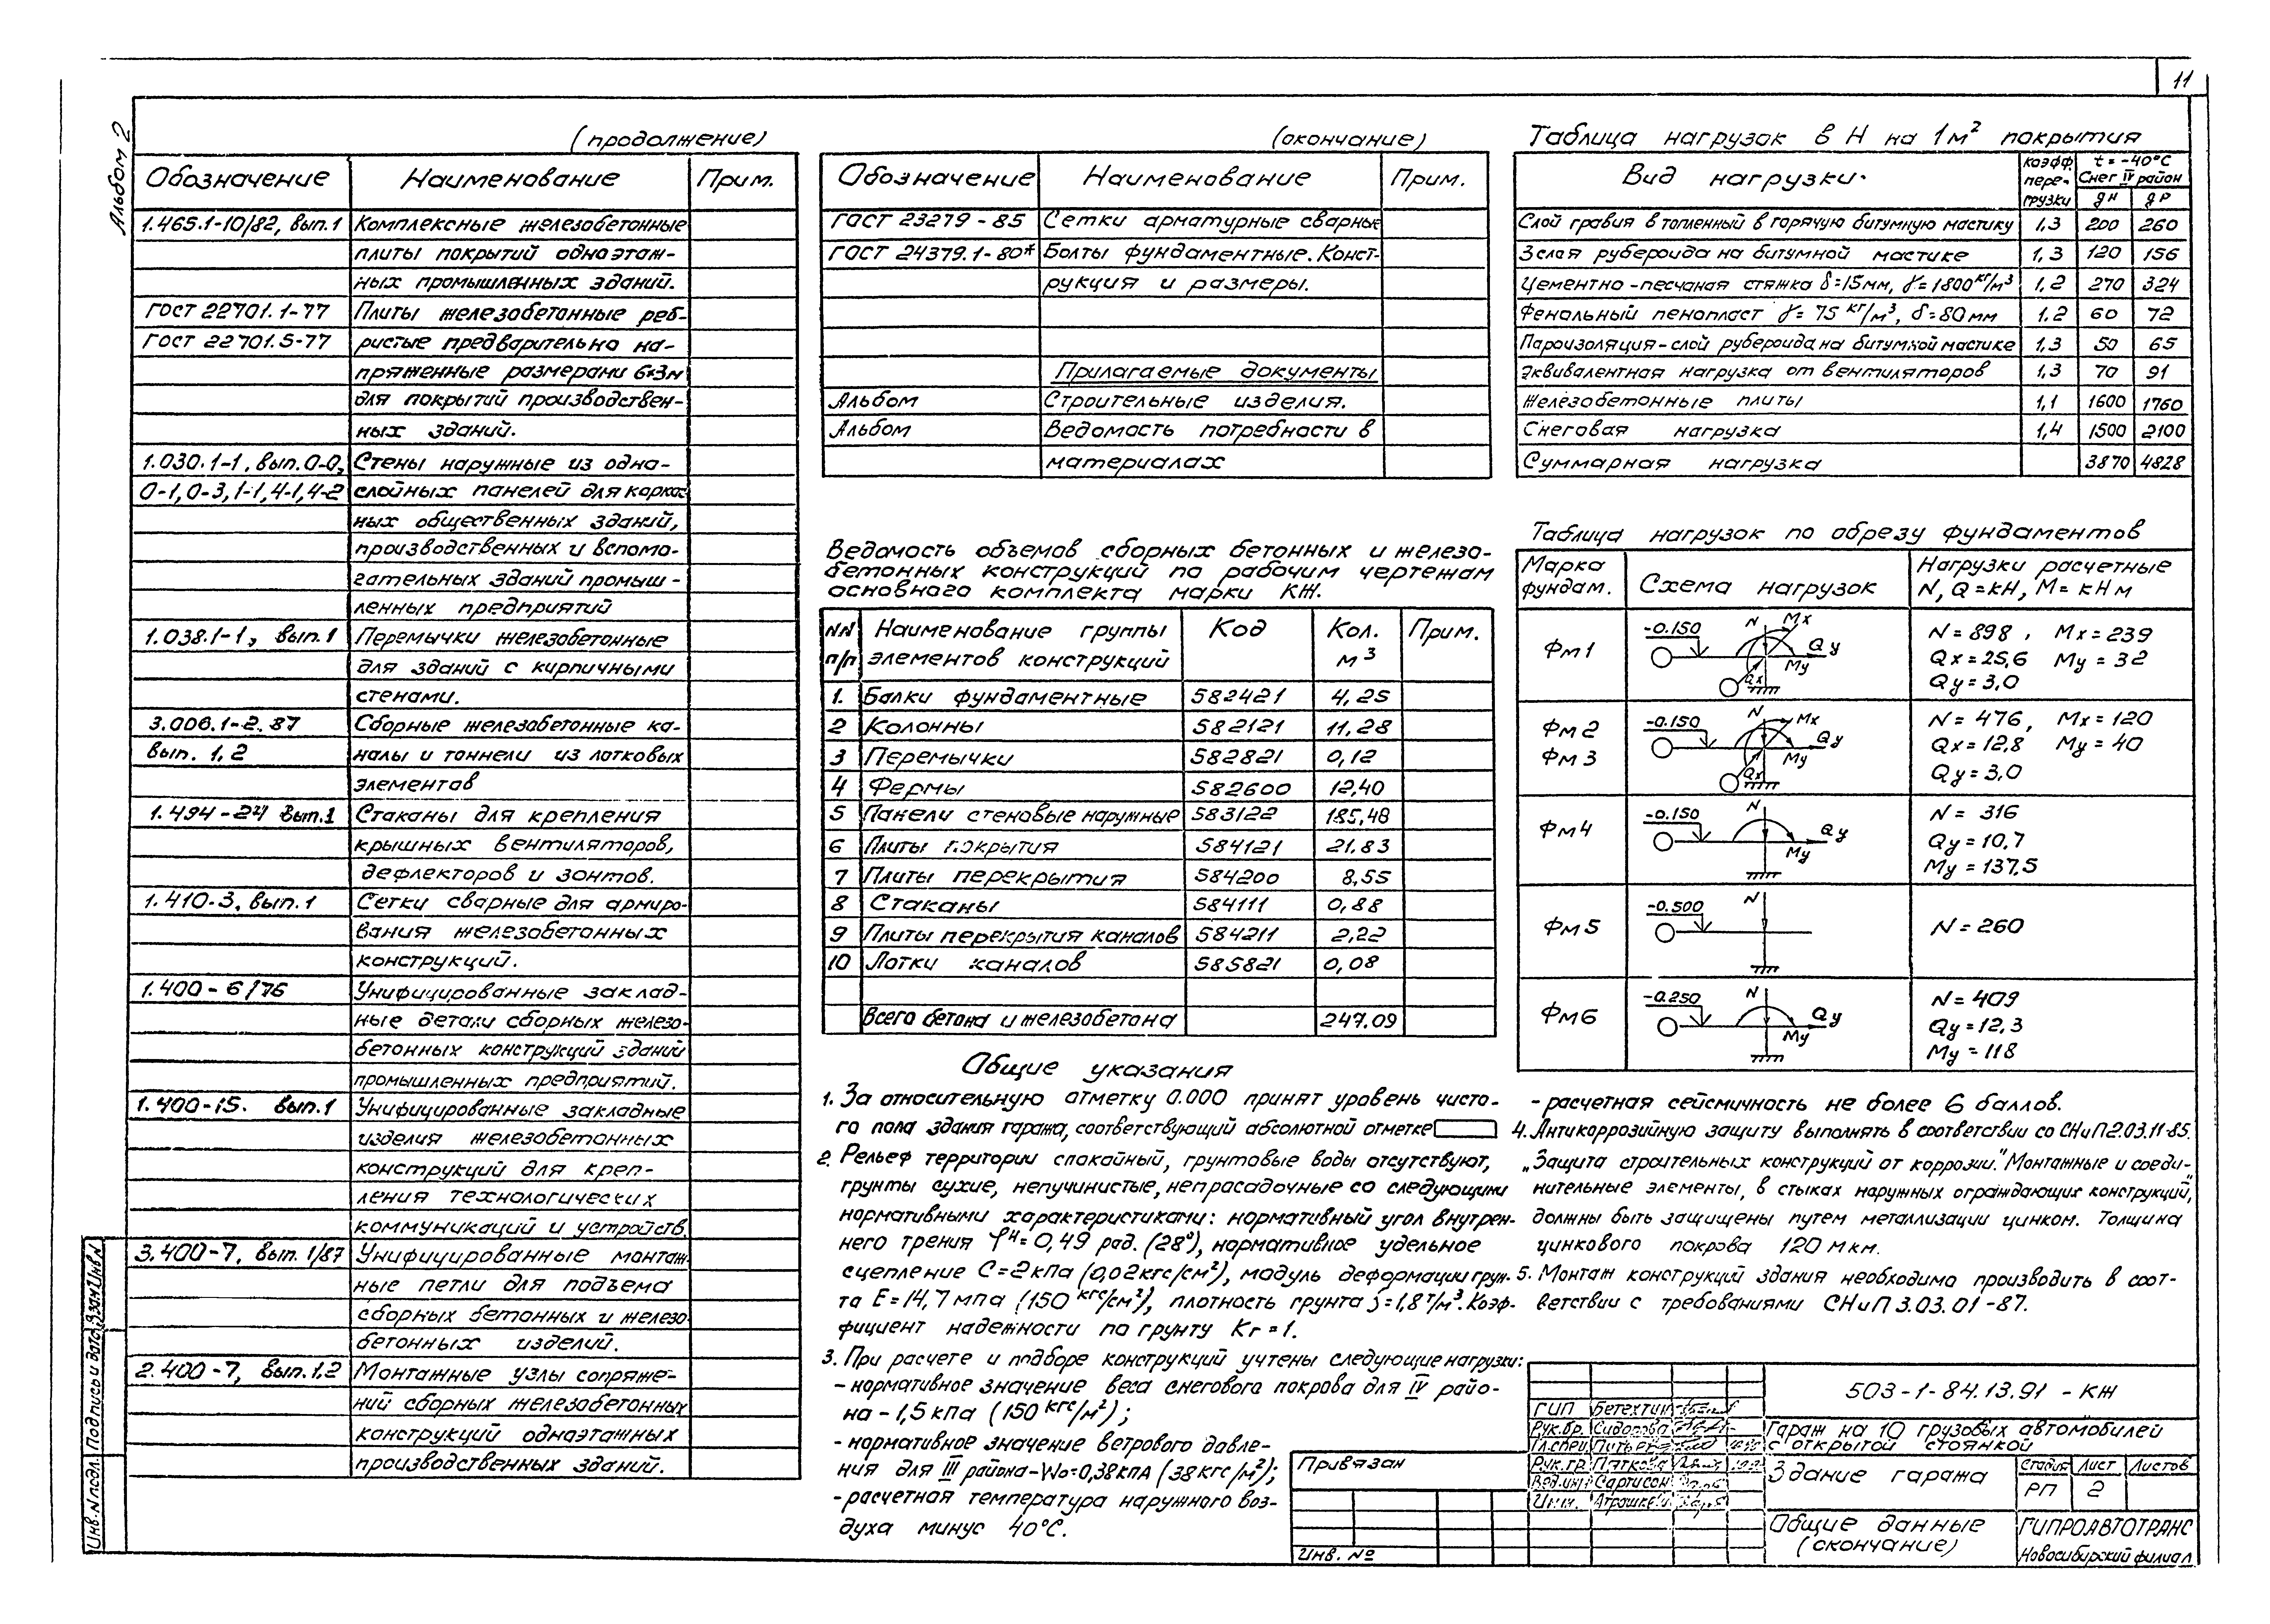 11
Альбом 2
(продолжение)
Обозначение Наименование Прим.
1.465.1-10/82, вып.1 Комплексные железобетонные
плиты покрытий одноэтаж-
ных промышленных зданий.
ГОСТ 22701.1-77 Плиты железобетонные реб-
ГОСТ 22701.5-77 ристые предварительно на-
пряженные размерами 6×3м
для покрытий производствен-
ных зданий.
1.030.1-1, вып.0-0, Стены наружные из одно-
0-1, 0-3, 1-1, 4-1, 4-2 слойных панелей для каркас
ных общественных зданий,
производственных и вспомо-
гательных зданий промыш-
ленных предприятий
1.038.1-1, вып.1 Перемычки железобетонные
для зданий с кирпичными
стенами.
3.006.1-2.87 Сборные железобетонные ка-
вып. 1,2 налы и тоннели из лотковых
элементов
1.494-24 вып.1 Стаканы для крепления
крышных вентиляторов,
дефлекторов и зонтов.
1.410-3, вып.1 Сетки сварные для армиро-
вания железобетонных
конструкций.
1.400-6/76 Унифицированные заклад-
ные детали сборных железо-
бетонных конструкций зданий
промышленных предприятий.
1.400-15. вып.1 Унифицированные закладные
изделия железобетонных
конструкций для креп-
ления технологических
коммуникаций и устройств.
3.400-7, вып. 1/87 Унифицированные монтаж-
ные петли для подъема
сборных бетонных и железо-
бетонных изделий.
2.400-7, вып.1.2 Монтажные узлы сопряже-
ний сборных железобетонных
конструкций одноэтажных
производственных зданий.
(окончание)
Обозначение Наименование Прим.
ГОСТ 23279-85 Сетки арматурные сварные
ГОСТ 24379.1-80* Болты фундаментные. Конст-
рукция и размеры.
Прилагаемые документы
Альбом Строительные изделия.
Альбом Ведомость потребности в
материалах
Ведомость объемов сборных бетонных и железо-
бетонных конструкций по рабочим чертежам
основного комплекта марки КЖ.
NN п/п Наименование группы элементов конструкций Код Кол. м³ Прим.
1. Балки фундаментные 582421 4,25
2 Колонны 582121 11,28
3 Перемычки 582821 0,12
4 Фермы 582600 12,40
5 Панели стеновые наружные 583122 185,48
6 Плиты покрытия 584121 21.83
7 Плиты перекрытия 584200 8,55
8 Стаканы 584111 0,88
9 Плиты перекрытия каналов 584211 2,22
10 Лотки каналов 585821 0,08
Всего бетона и железобетона 247.09
Общие указания
1. За относительную отметку 0.000 принят уровень чисто-
го пола здания гаража, соответствующий абсолютной отметке
2. Рельеф территории спокойный, грунтовые воды отсутствуют,
грунты сухие, непучинистые, непросадочные со следующими
нормативными характеристиками: нормативный угол внутрен-
него трения φн=0,49 рад. (28°), нормативное удельное
сцепление С=2кПа (0,02кгс/см²), модуль деформации грун-
та Е=14,7мпа (150 кгс/см²), плотность грунта ρ=1,8т/м³. Коэф-
фициент надежности по грунту Кг=1.
3. При расчете и подборе конструкций учтены следующие нагрузки:
- нормативное значение веса снегового покрова для IV райо-
на - 1,5 кПа (150 кгс/м²);
- нормативное значение ветрового давле-
ния для III района - Wo=0,38кПА (38кгс/м²);
- расчетная температура наружного воз-
духа минус 40°С.
Таблица нагрузок в Н на 1м² покрытия
Вид нагрузки. коэфф. пере- грузки t=-40°С Снег IV район gн gр
Слой гравия втопленный в горячую битумную мастику 1,3 200 260
3 слоя рубероида на битумной мастике 1,3 120 156
Цементно-песчаная стяжка δ=15мм, γ=1800кг/м³ 1,2 270 324
Фенольный пенопласт γ=75 кг/м³, δ=80мм 1.2 60 72
Пароизоляция-слой рубероида на битумной мастике 1,3 50 65
Эквивалентная нагрузка от вентиляторов 1,3 70 91
Железобетонные плиты 1,1 1600 1760
Снеговая нагрузка 1,4 1500 2100
Суммарная нагрузка 3870 4828
Таблица нагрузок по обрезу фундаментов
Марка фундам. Схема нагрузок Нагрузки расчетные N, Q=кН, М=кНм
Фм1 -0.150 N Mx Qy My Qx N=898, Mx=239
Qx=25,6 My=32
Qy=3,0
Фм2 Фм3 -0.150 N Mx Qy My Qx N=476, Mx=120
Qx=12,8 My=40
Qy=3,0
Фм4 -0.150 N Qy My N=316
Qy=10,7
My=137,5
Фм5 -0.500 N N=260
Фм6 -0.250 N Qy My N=409
Qy=12,3
My=118
- расчетная сейсмичность не более 6 баллов.
4. Антикоррозийную защиту выполнять в соответствии со СНиП2.03.11-85.
„Защита строительных конструкций от коррозии." Монтажные и соеди-
нительные элементы, в стыках наружных ограждающих конструкций,
должны быть защищены путем металлизации цинком. Толщина
цинкового покрова 120 мкм.
5. Монтаж конструкций здания необходимо производить в соот-
ветствии с требованиями СНиП 3.03.01-87.
Привязан
Инв. №
ГИП Бетехтин
Рук.бр. Сидорова
Гл.спец.
Рук.гр. Пяткова
Вед.инж Сартисон
Инж.
503-1-84.13.91 - КЖ
Гараж на 10 грузовых автомобилей
с открытой стоянкой
Здание гаража
Стадия Лист Листов
РП 2
Общие данные
(окончание)
ГИПРОАВТОТРАНС
Новосибирский филиал
Инв.N подл. Подпись и дата Взам.Инв.N